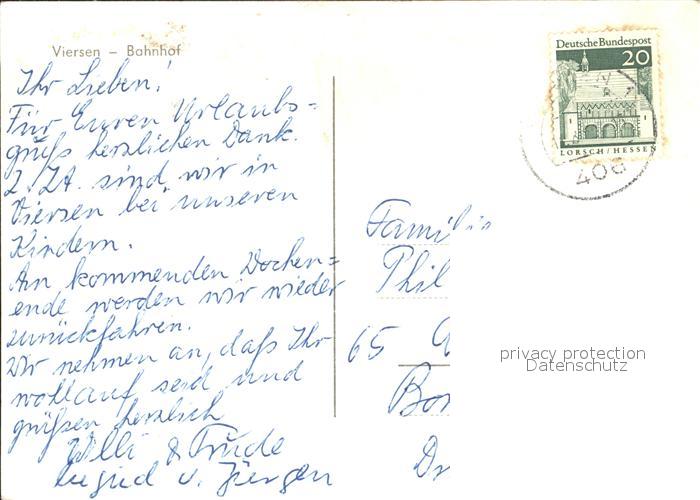 Viersen – Bahnhof
Ihr Lieben!
Für Euren Urlaubs-
gruß herzlichen Dank.
z. Zt. sind wir in
Viersen bei unseren
Kindern.
Am kommenden Wochen=
ende werden wir wieder
zurückfahren.
Wir nehmen an, daß Ihr
wohlauf seid und
grüßen herzlich
Willi & Trude
Ingrid u. Jürgen
Deutsche Bundespost
20
LORSCH/HESSEN
406
Familie
Phil
65
Bor
Dr
privacy protection
Datenschutz